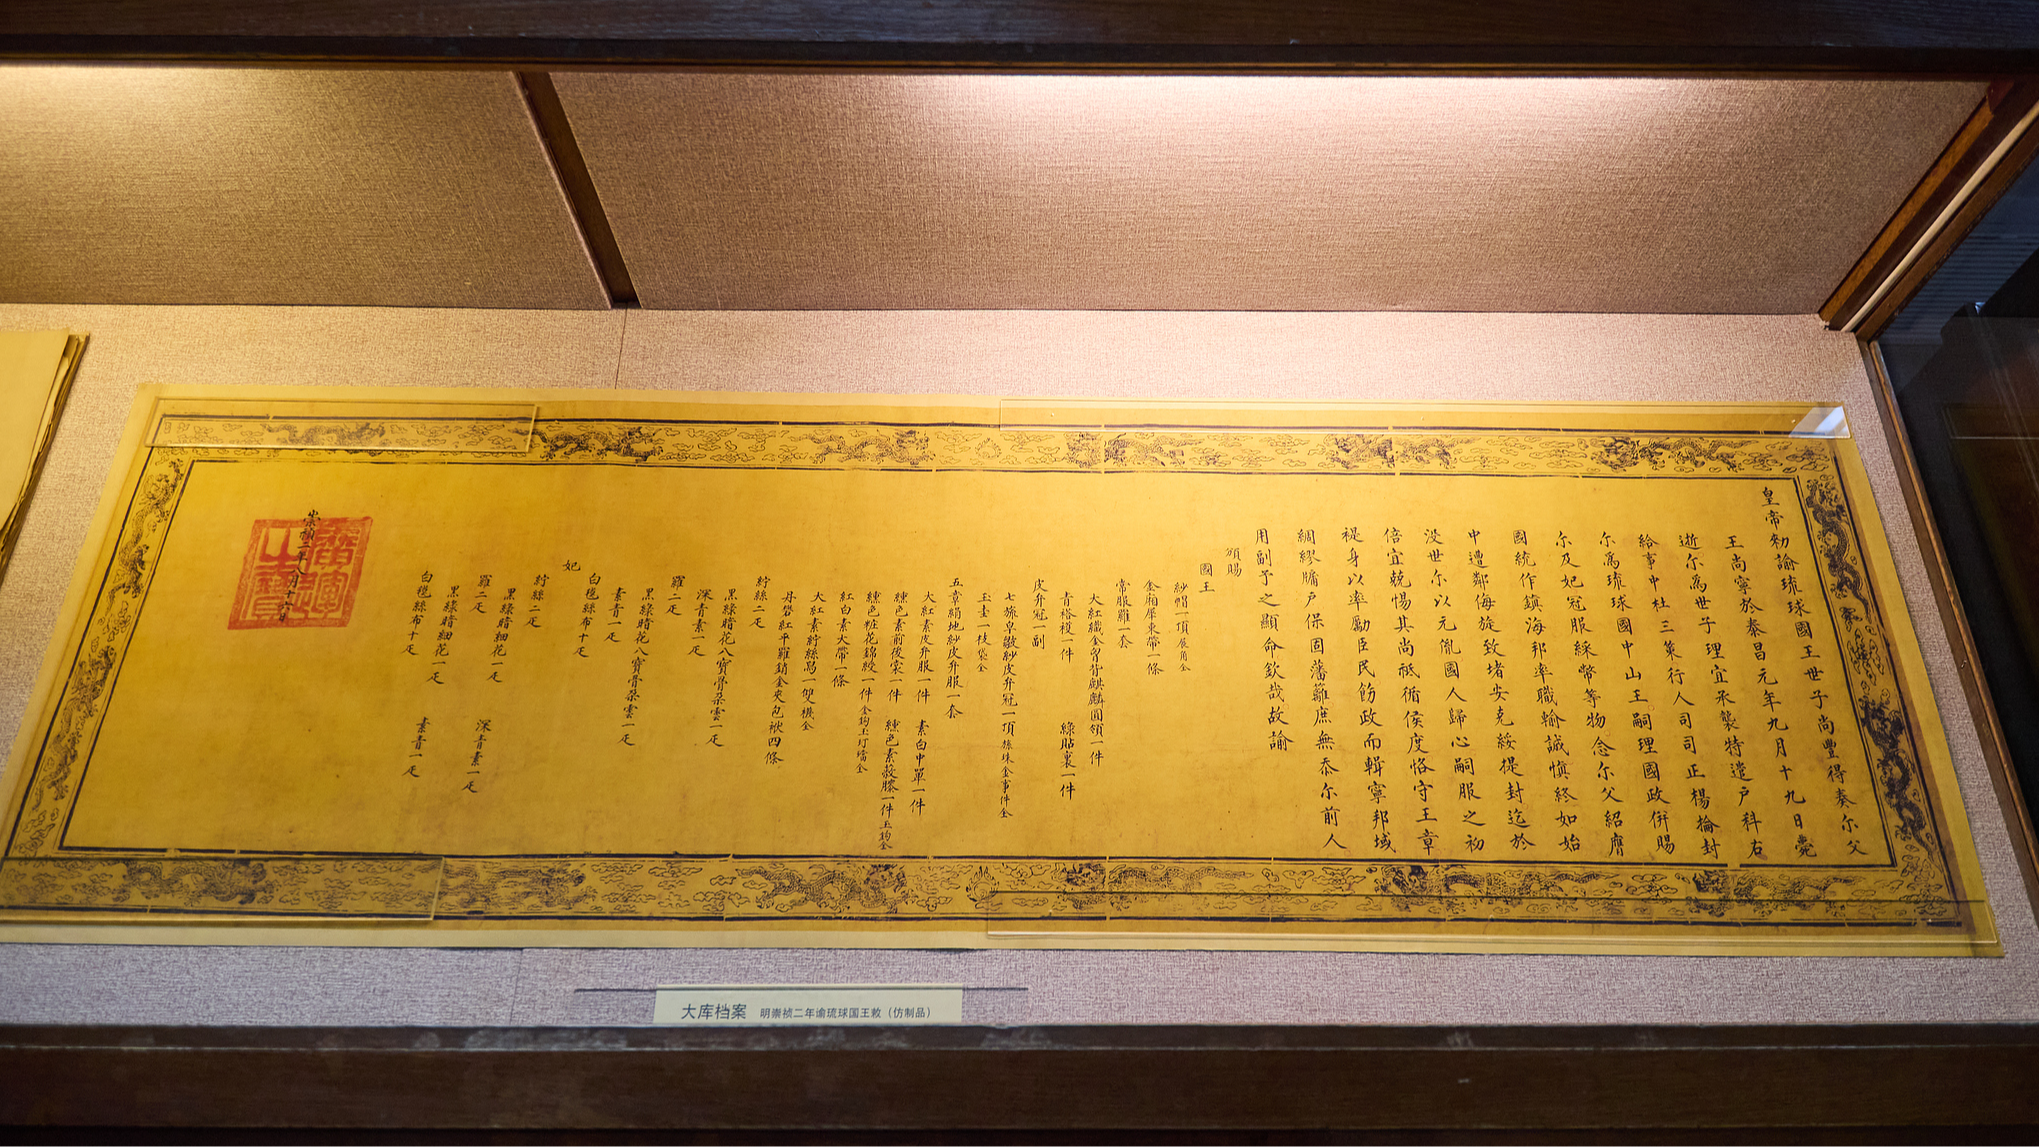 皇帝勑諭琉球國王世子尚豐得奏尔父
王尚寧於泰昌元年九月十九日薨
逝尔為世子理宜承襲特遣户科右
給事中杜三策行人司司正楊掄封
尔為琉球國中山王嗣理國政併賜
尔及妃冠服綵幣等物念尔父紹膺
國統作鎮海邦率職輸誠慎終如始
中遭鄰侮旋致堵安克綏提封迄於
没世尔以元胤國人歸心嗣服之初
倍宜兢惕其尚祗循侯度恪守王章
禔身以率勵臣民飭政而輯寧邦域
綢繆牖户保固藩籬庶無忝尔前人
用副予之顯命欽哉故諭
頒賜
國王
紗帽一頂展角全
金廂犀束帶一條
常服羅一套
大紅織金胷背麒麟圓領一件
青褡䙱一件 綠貼裏一件
皮弁冠一副
七旒皂皺紗皮弁冠一頂旒珠金事件全
玉圭一枝袋全
五章絹地紗皮弁服一套
大紅素皮弁服一件 素白中單一件
纁色素前後裳一件 纁色素蔽膝一件玉鈎全
纁色粧花錦綬一件金鈎玉玎璫全
紅白素大帶一條
大紅素紵絲舄一雙襪全
丹礬紅平羅銷金夾包袱四條
紵絲二疋
黑綠暗花八寶骨朶雲一疋
深青素一疋
羅二疋
黑綠暗花八寶骨朶雲一疋
素青一疋
白氁絲布十疋
妃
紵絲二疋
黑綠暗細花一疋 深青素一疋
羅二疋
黑綠暗細花一疋 素青一疋
白氁絲布十疋
崇禎二年八月十六日
廣運之寶
大库档案 明崇祯二年谕琉球国王敕（仿制品）